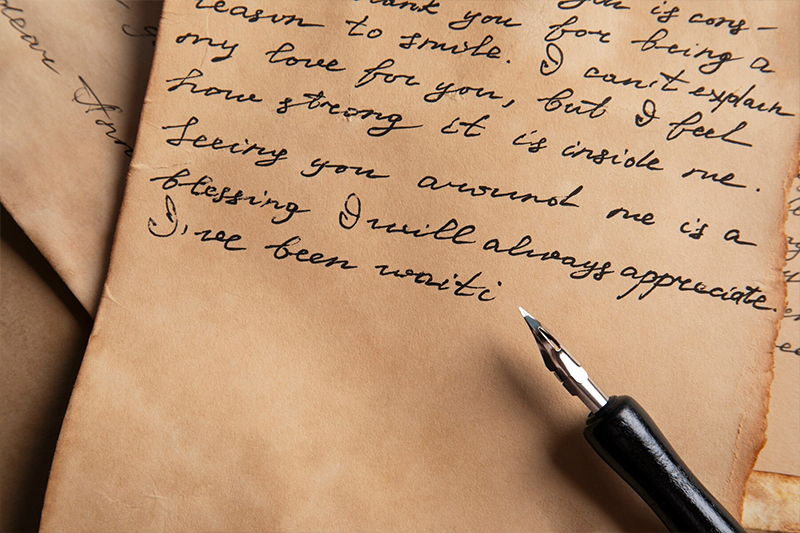 you is cons-
thank you for being a
reason to smile. I can't explain
my love for you, but I feel
how strong it is inside me.
Seeing you around me is a
blessing I will always appreciate.
I've been waiti
dear